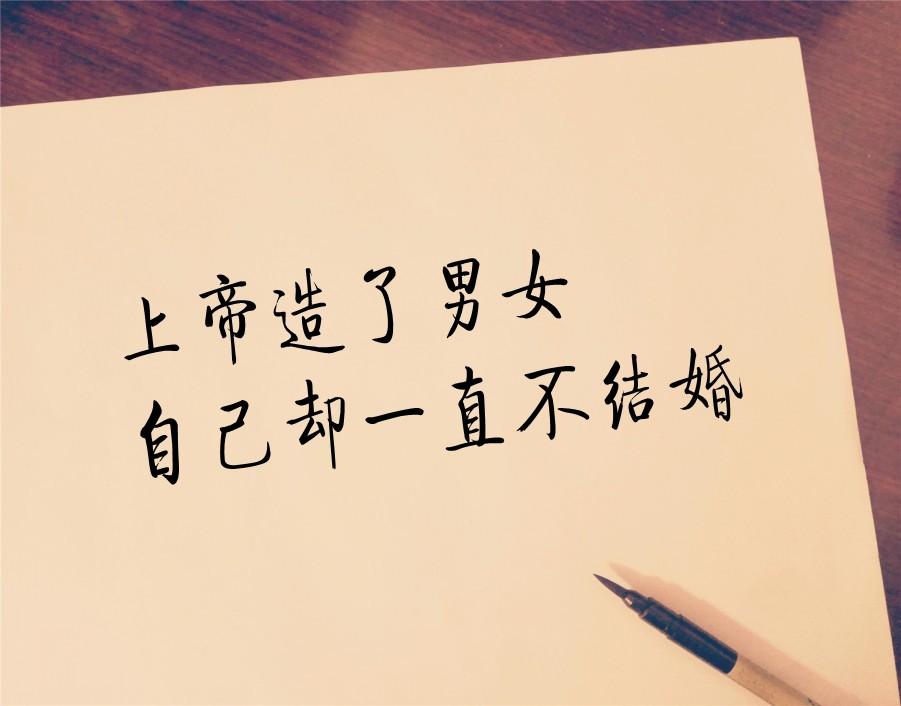 上帝造了男女
自己却一直不结婚